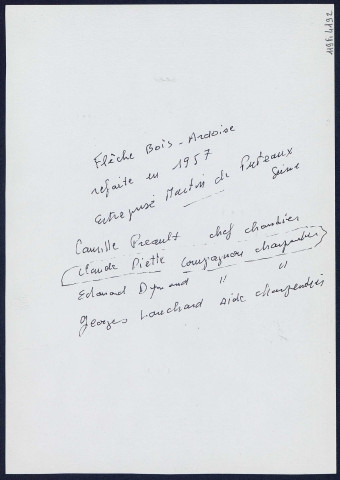 Flèche Bois - Ardoise
refaite en 1957
Entreprise Martin de Puteaux
Seine
Camille Preault chef chantier
Claude Piette Compagnon charpentier
Edouard Dymand " "
Georges Lanchard Aide charpentier